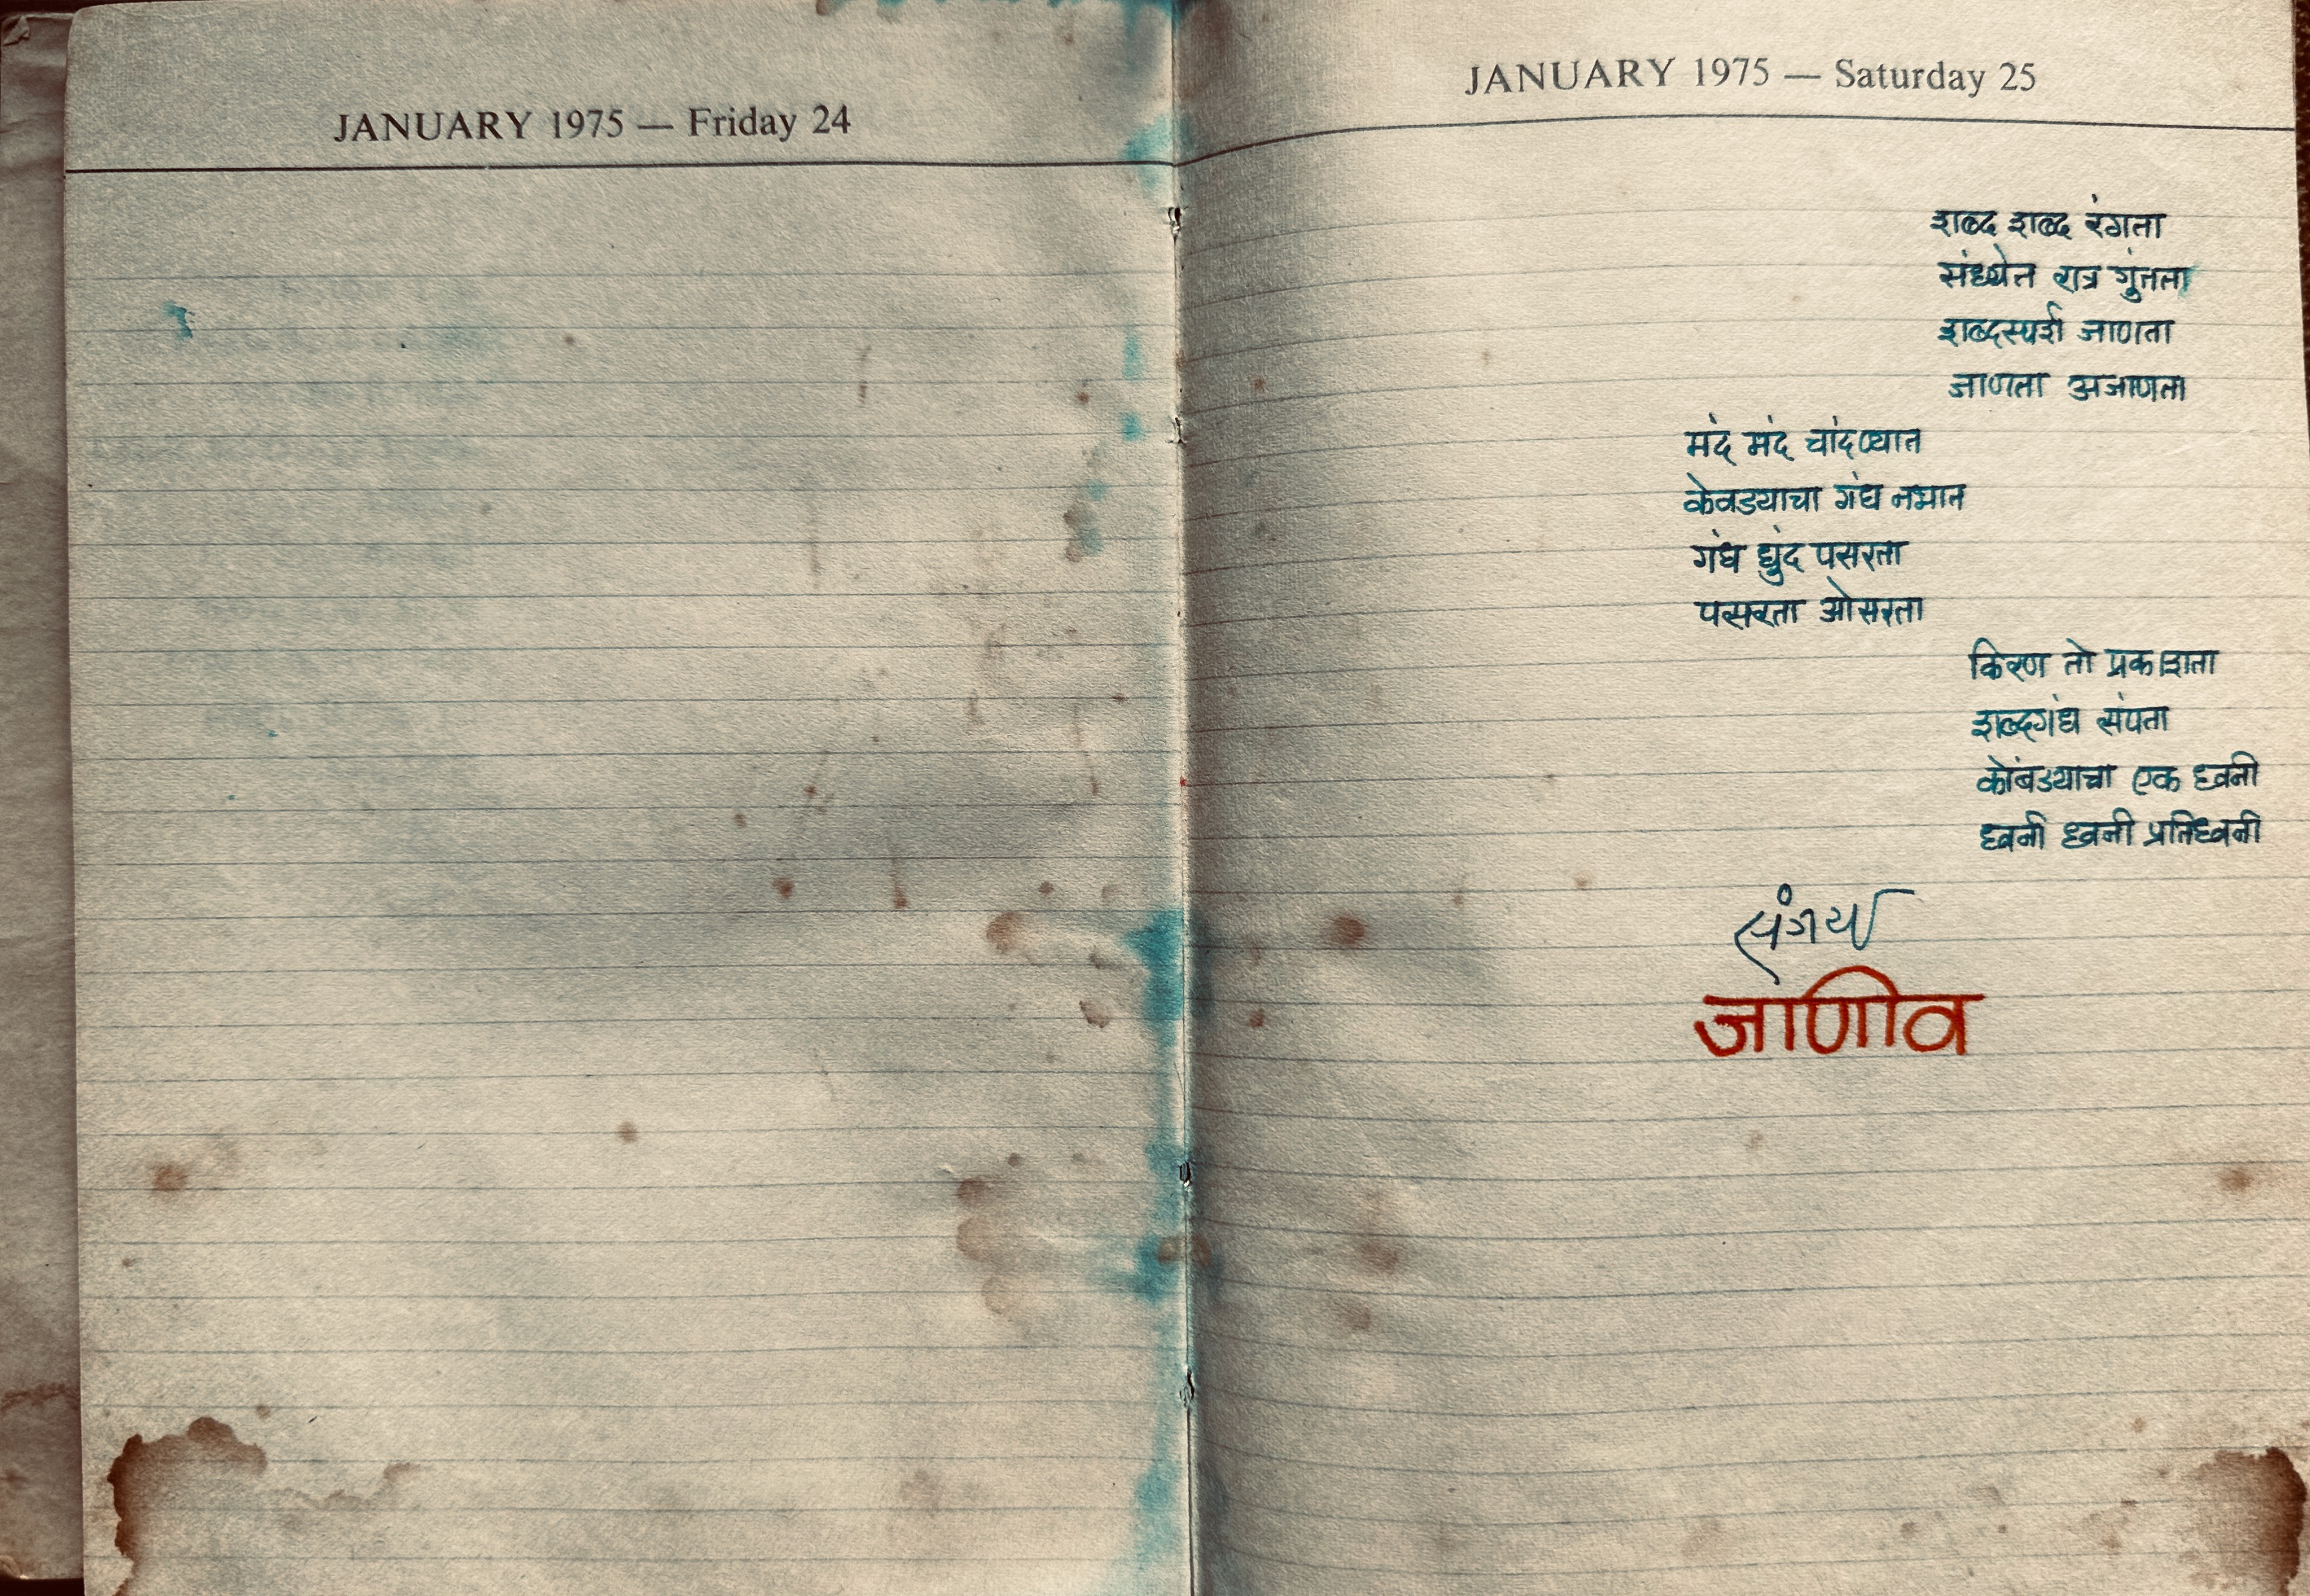 JANUARY 1975 — Friday 24
JANUARY 1975 — Saturday 25
शब्द शब्द रंगता
संध्येत रात्र गुंतता
शब्दस्पर्श जाणता
जाणता अजाणता
मंद मंद चांदण्यात
केवड्याचा गंध नभात
गंध धुंद पसरता
पसरता ओसरता
किरण तो प्रकाशता
शब्दगंध संपता
कोंबड्याचा एक ध्वनी
ध्वनी ध्वनी प्रतिध्वनी
जाणीव